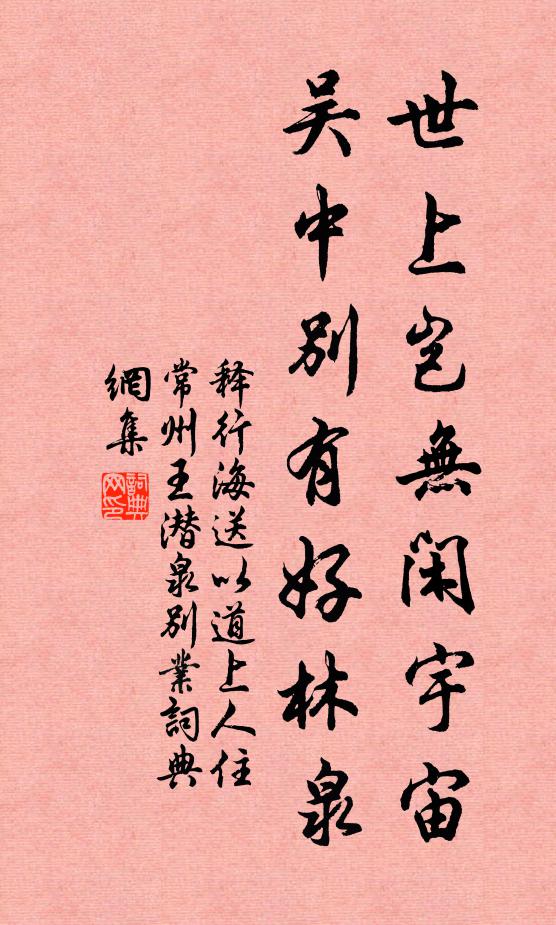 世上岂無閑宇宙
吴中别有好林泉
释行海送以道上人住
常州王潜泉别業詞典
網集
詞典網印